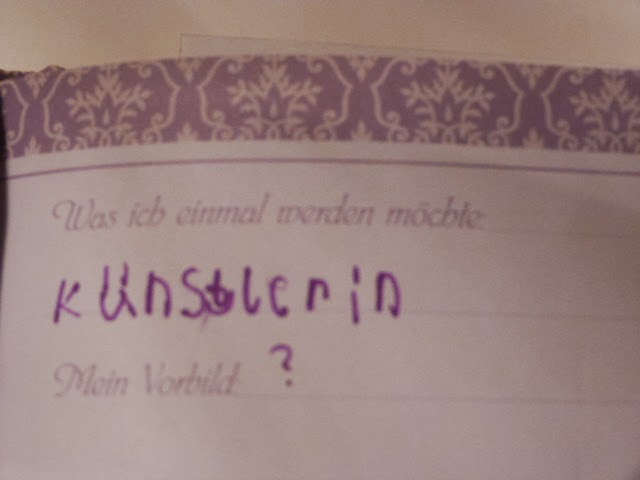 Was ich einmal werden möchte:
Künstlerin
Mein Vorbild: ?